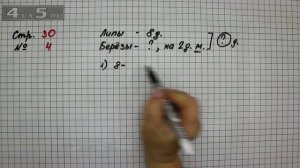 4 на 5.ru
Стр. 30
№ 4
Липы - 8 д.
Берёзы - ?, на 2 д. м.
? д.
1) 8-